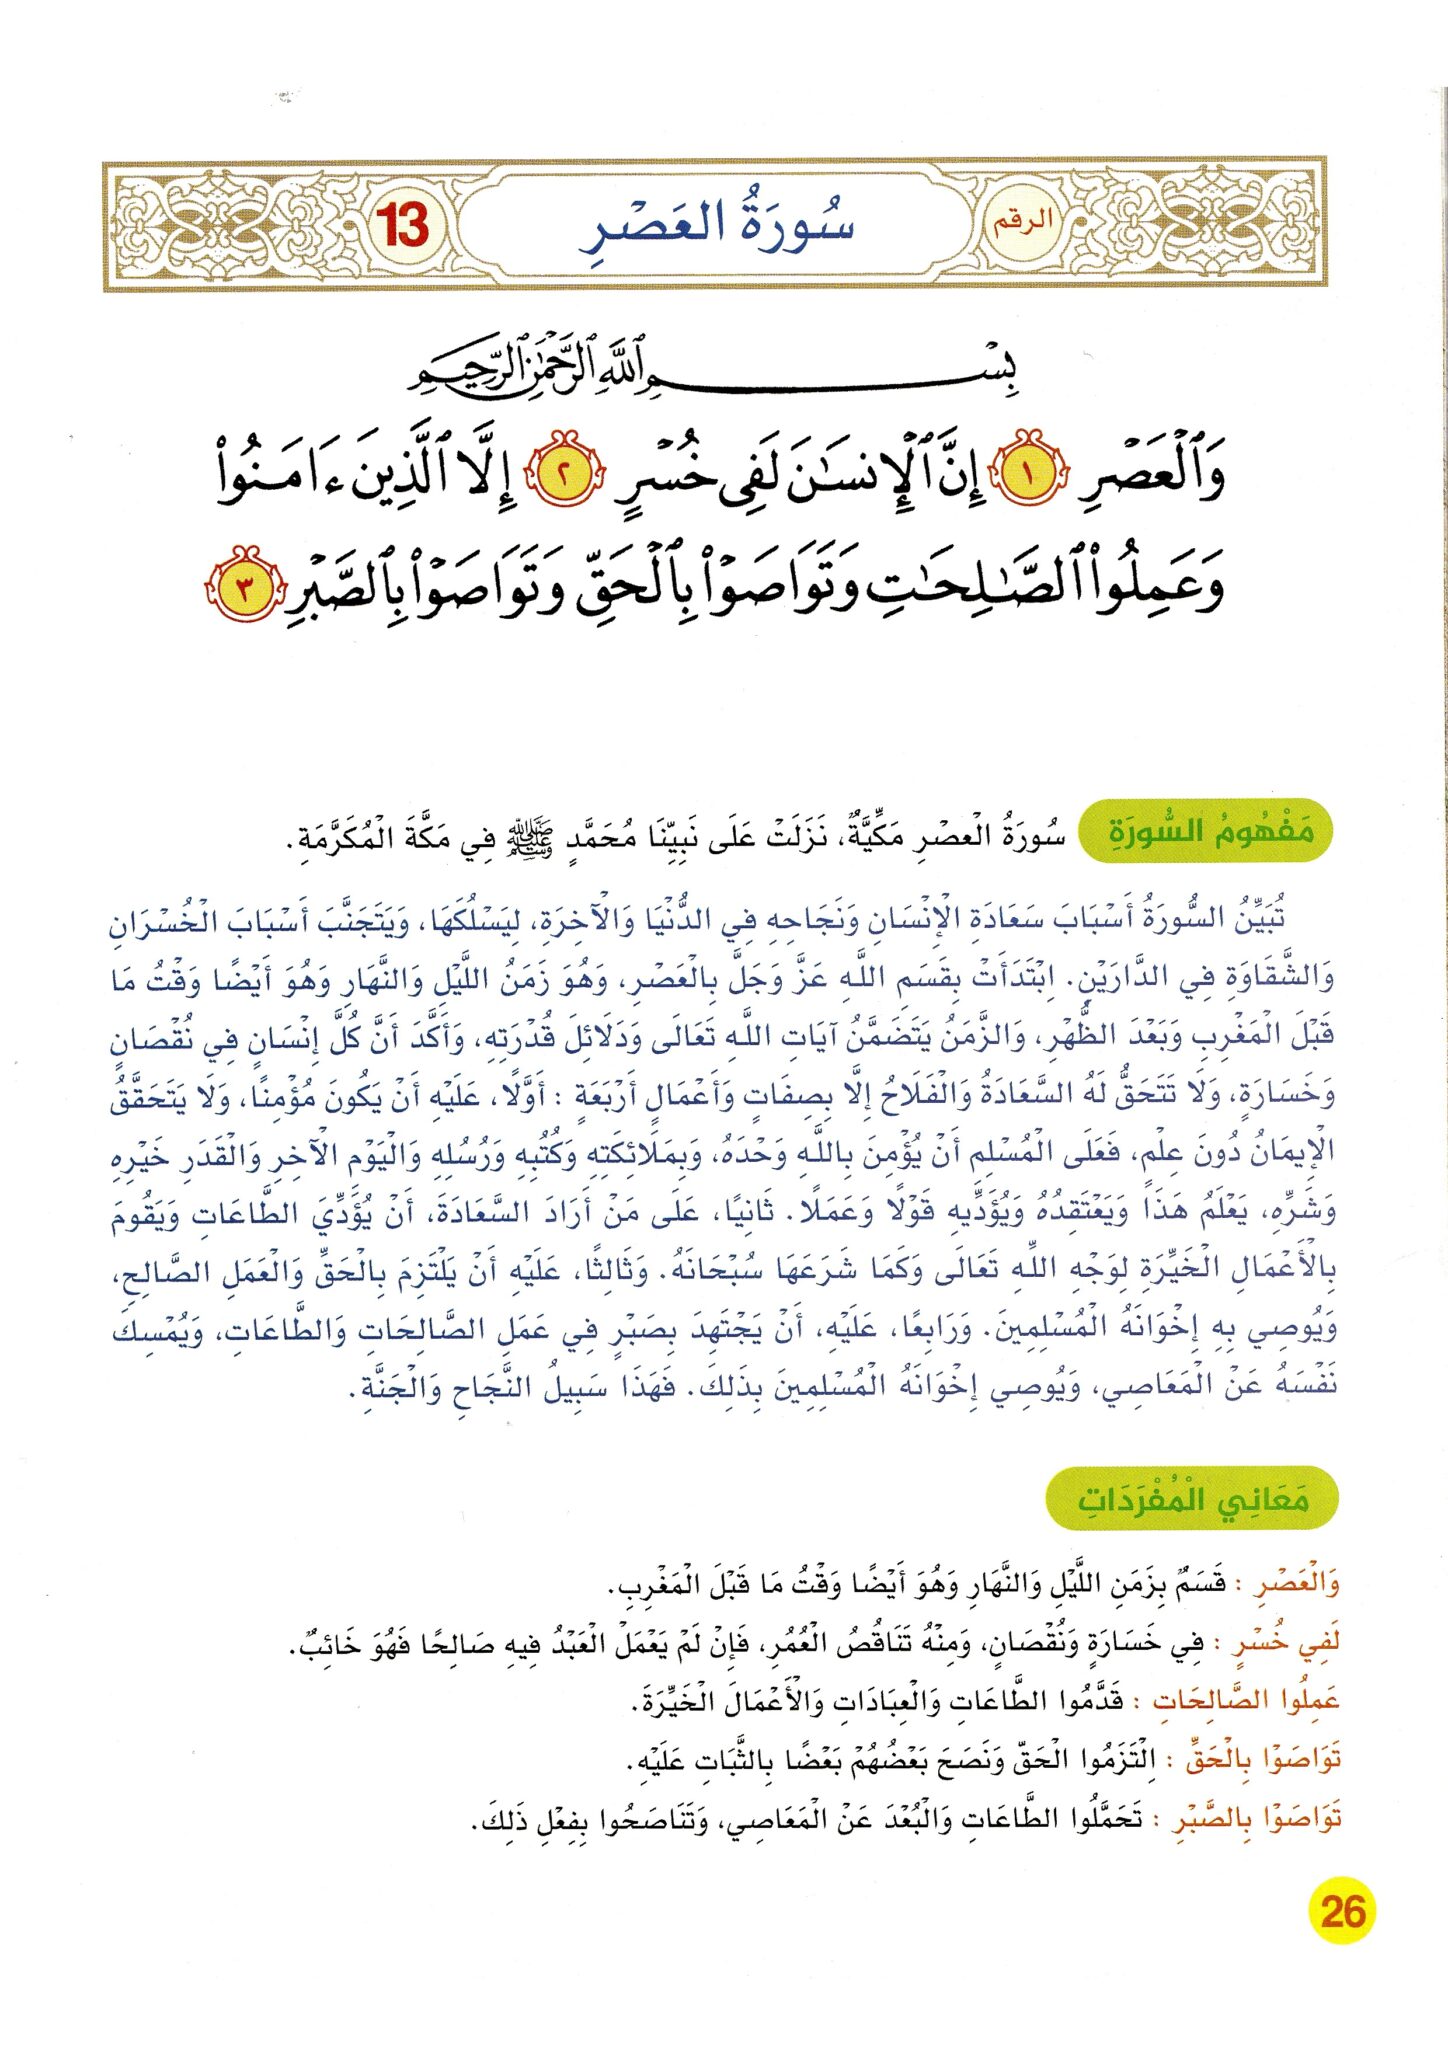 الرقم سُورَةُ العَصْرِ 13
بِسْمِ ٱللَّهِ ٱلرَّحْمَٰنِ ٱلرَّحِيمِ
وَٱلْعَصْرِ ١ إِنَّ ٱلْإِنسَٰنَ لَفِى خُسْرٍ ٢ إِلَّا ٱلَّذِينَ ءَامَنُوا۟
وَعَمِلُوا۟ ٱلصَّٰلِحَٰتِ وَتَوَاصَوْا۟ بِٱلْحَقِّ وَتَوَاصَوْا۟ بِٱلصَّبْرِ ٣
مَفْهُومُ السُّورَةِ سُورَةُ الْعصْرِ مَكِّيَّةٌ، نَزَلَتْ عَلَى نَبِيِّنَا مُحَمَّدٍ ﷺ فِي مَكَّةَ الْمُكَرَّمَةِ.
تُبَيِّنُ السُّورَةُ أَسْبَابَ سَعَادَةِ الْإِنْسَانِ وَنَجَاحِهِ فِي الدُّنْيَا وَالْآخِرَةِ، لِيَسْلُكَهَا، وَيَتَجَنَّبَ أَسْبَابَ الْخُسْرَانِ
وَالشَّقَاوَةِ فِي الدَّارَيْنِ. اِبْتَدَأَتْ بِقَسَمِ اللَّهِ عَزَّ وَجَلَّ بِالْعَصْرِ، وَهُوَ زَمَنُ اللَّيْلِ وَالنَّهَارِ وَهُوَ أَيْضًا وَقْتُ مَا
قَبْلَ الْمَغْرِبِ وَبَعْدَ الظُّهْرِ، وَالزَّمَنُ يَتَضَمَّنُ آيَاتِ اللَّهِ تَعَالَى وَدَلَائِلَ قُدْرَتِهِ، وَأَكَّدَ أَنَّ كُلَّ إِنْسَانٍ فِي نُقْصَانٍ
وَخَسَارَةٍ، وَلَا تَتَحَقُّ لَهُ السَّعَادَةُ وَالْفَلَاحُ إِلَّا بِصِفَاتٍ وَأَعْمَالٍ أَرْبَعَةٍ : أَوَّلًا، عَلَيْهِ أَنْ يَكُونَ مُؤْمِنًا، وَلَا يَتَحَقَّقُ
الْإِيمَانُ دُونَ عِلْمٍ، فَعَلَى الْمُسْلِمِ أَنْ يُؤْمِنَ بِاللَّهِ وَحْدَهُ، وَبِمَلَائِكَتِهِ وَكُتُبِهِ وَرُسُلِهِ وَالْيَوْمِ الْآخِرِ وَالْقَدَرِ خَيْرِهِ
وَشَرِّهِ، يَعْلَمُ هَذَا وَيَعْتَقِدُهُ وَيُؤَدِّيهِ قَوْلًا وَعَمَلًا. ثَانِيًا، عَلَى مَنْ أَرَادَ السَّعَادَةَ، أَنْ يُؤَدِّيَ الطَّاعَاتِ وَيَقُومَ
بِالْأَعْمَالِ الْخَيِّرَةِ لِوَجْهِ اللَّهِ تَعَالَى وَكَمَا شَرَعَهَا سُبْحَانَهُ. وَثَالِثًا، عَلَيْهِ أَنْ يَلْتَزِمَ بِالْحَقِّ وَالْعَمَلِ الصَّالِحِ،
وَيُوصِي بِهِ إِخْوَانَهُ الْمُسْلِمِينَ. وَرَابِعًا، عَلَيْهِ، أَنْ يَجْتَهِدَ بِصَبْرٍ فِي عَمَلِ الصَّالِحَاتِ وَالطَّاعَاتِ، وَيُمْسِكَ
نَفْسَهُ عَنْ الْمَعَاصِي، وَيُوصِي إِخْوَانَهُ الْمُسْلِمِينَ بِذَلِكَ. فَهَذَا سَبِيلُ النَّجَاحِ وَالْجَنَّةِ.
مَعَانِي الْمُفْرَدَاتِ
وَالْعَصْرِ : قَسَمٌ بِزَمَنِ اللَّيْلِ وَالنَّهَارِ وَهُوَ أَيْضًا وَقْتُ مَا قَبْلَ الْمَغْرِبِ.
لَفِي خُسْرٍ : فِي خَسَارَةٍ وَنُقْصَانٍ، وَمِنْهُ تَنَاقُصُ الْعُمُرِ، فَإِنْ لَمْ يَعْمَلْ الْعَبْدُ فِيهِ صَالِحًا فَهُوَ خَائِبٌ.
عَمِلُوا الصَّالِحَاتِ : قَدَّمُوا الطَّاعَاتِ وَالْعِبَادَاتِ وَالْأَعْمَالَ الْخَيِّرَةَ.
تَوَاصَوْا بِالْحَقِّ : اِلْتَزَمُوا الْحَقّ وَنَصَحَ بَعْضُهُمْ بَعْضًا بِالثَّبَاتِ عَلَيْهِ.
تَوَاصَوْا بِالصَّبْرِ : تَحَمَّلُوا الطَّاعَاتِ وَالْبُعْدَ عَنْ الْمَعَاصِي، وَتَنَاصَحُوا بِفِعْلِ ذَلِكَ.
26